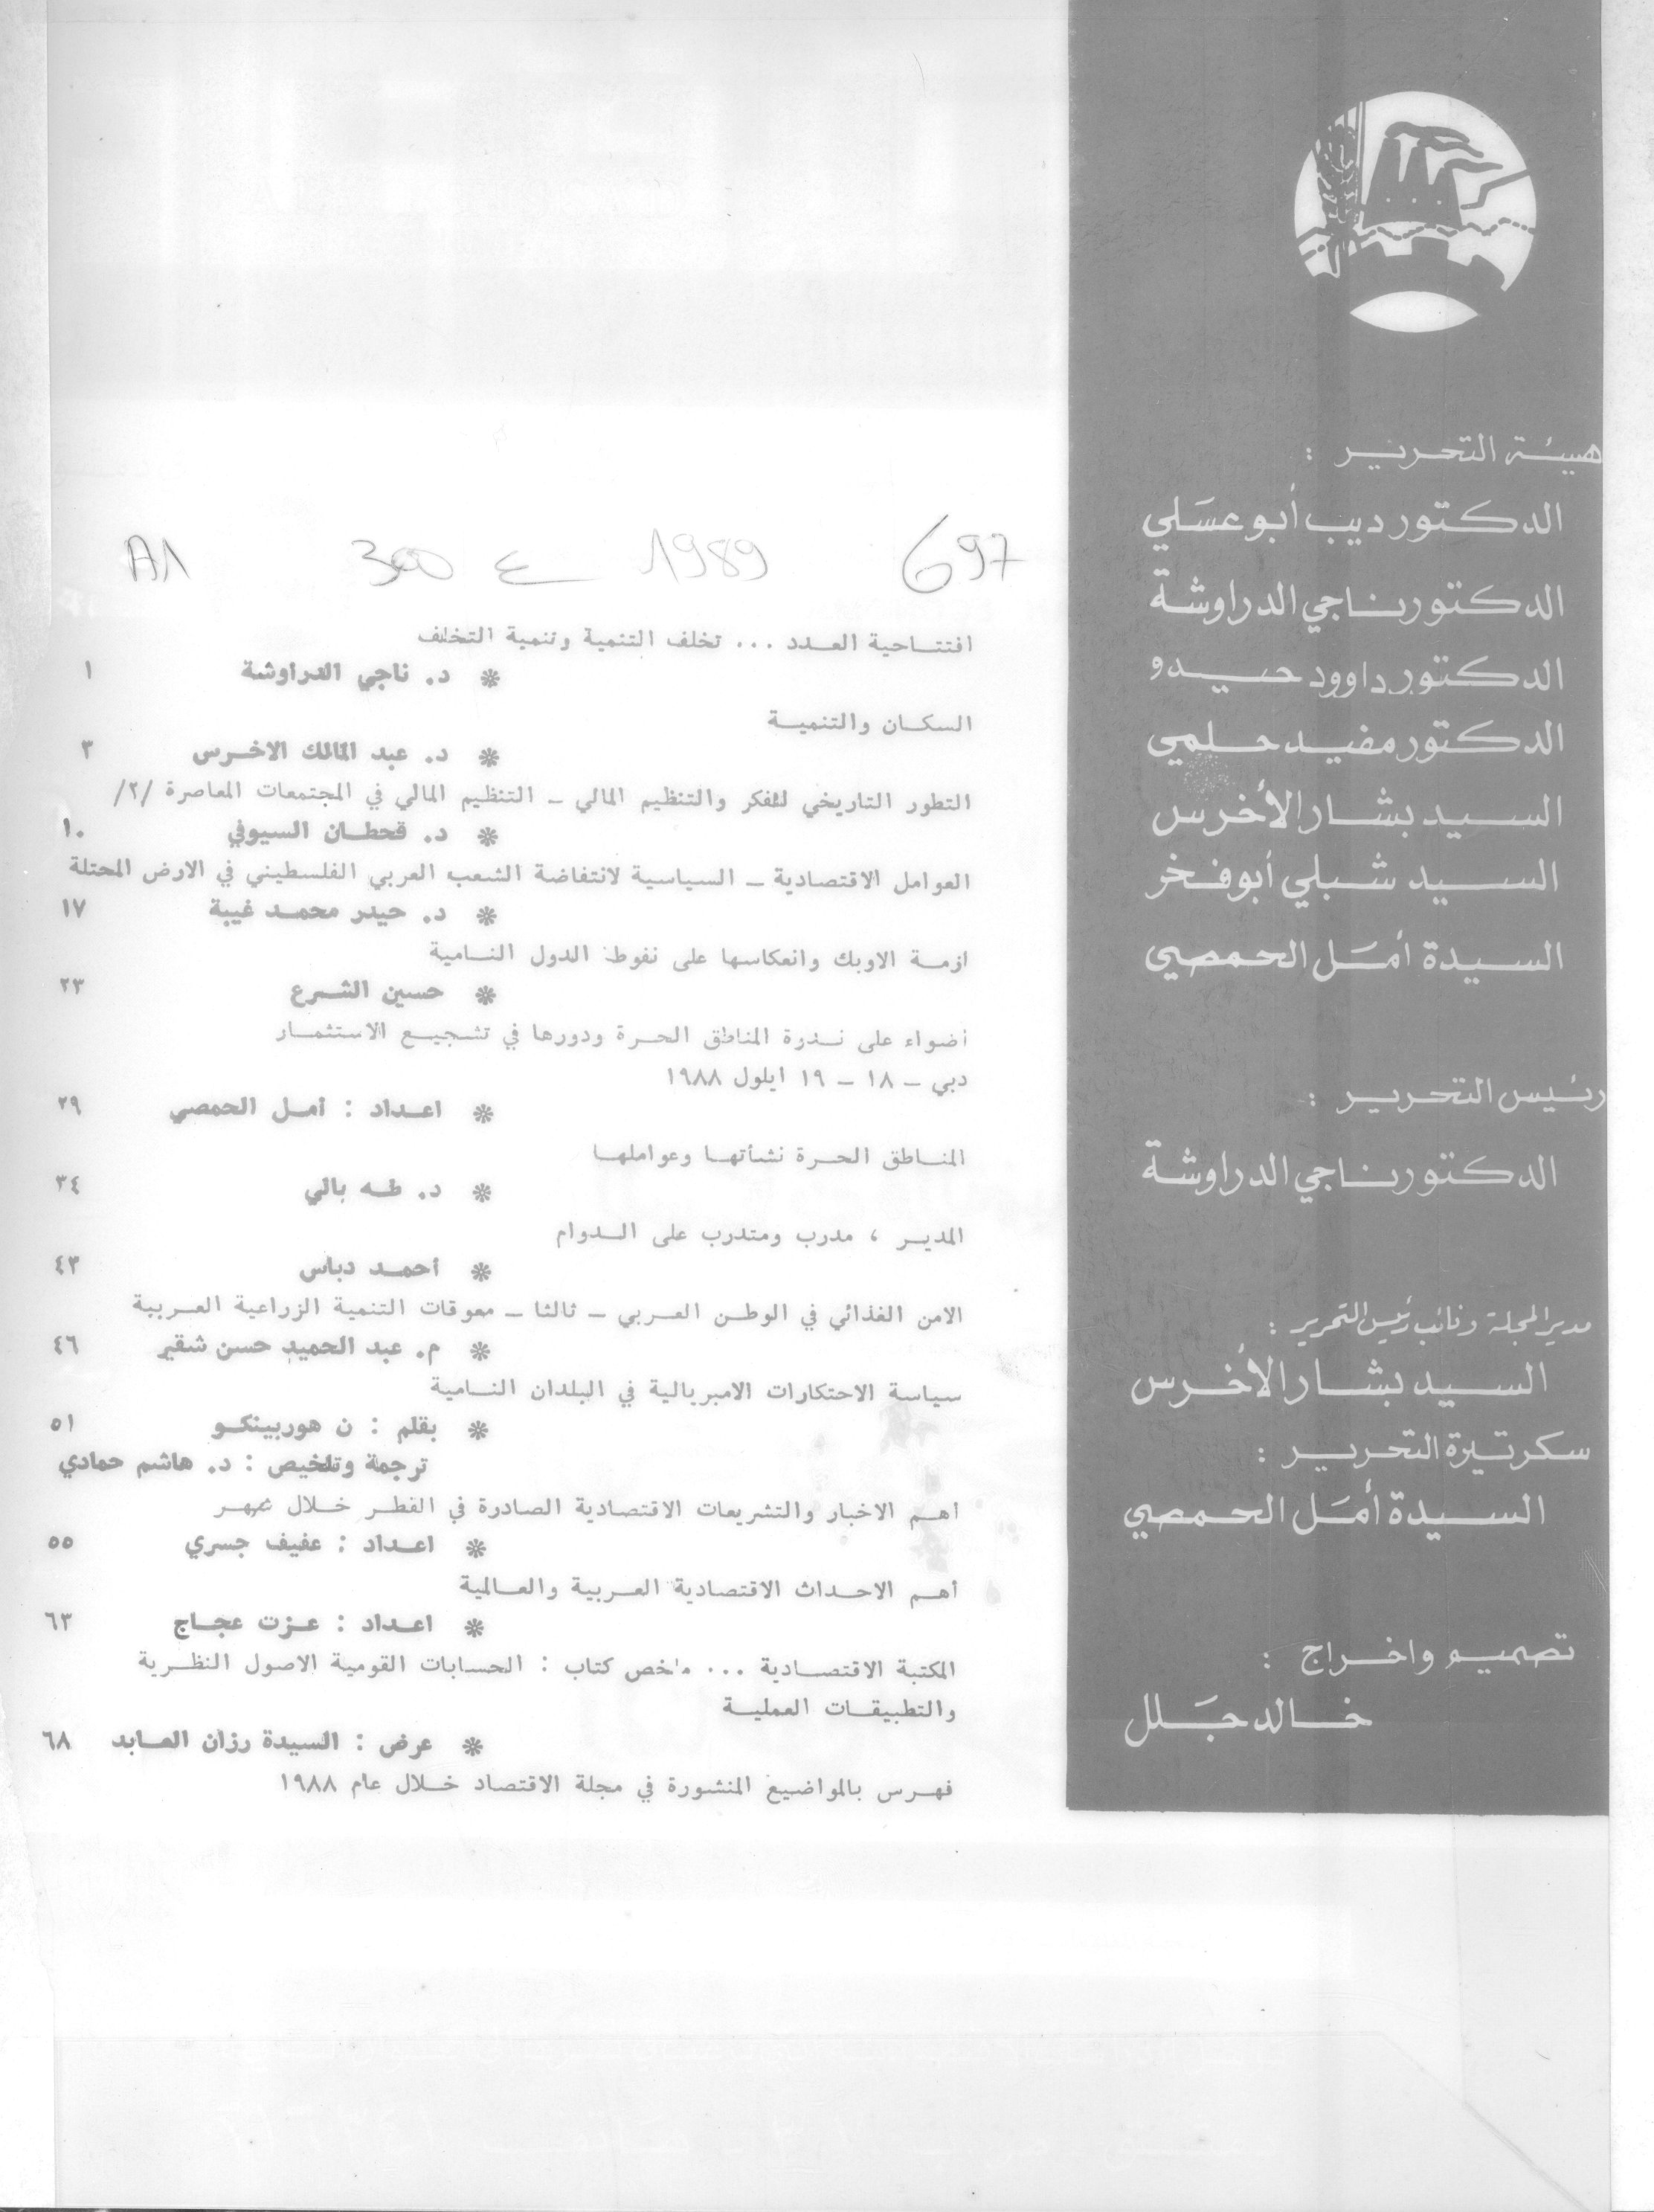 هيئة التحرير :
الدكتور ديب أبو عسلي
الدكتور ناجي الدراوشة
الدكتور داوود حيدو
الدكتور مفيد حلمي
السيد بشار الأخرس
السيد شبلي أبو فخر
السيدة أمل الحمصي
رئيس التحرير :
الدكتور ناجي الدراوشة
مدير المجلة ونائب رئيس التحرير :
السيد بشار الأخرس
سكرتيرة التحرير :
السيدة أمل الحمصي
تصميم واخراج :
خالد جلل
697 1989 ع 300 A1
افتتاحية العدد ... تخلف التنمية وتنمية التخلف
* د. ناجي الدراوشة ١
السكان والتنمية
* د. عبد المالك الاخرس ٣
التطور التاريخي للفكر والتنظيم المالي - التنظيم المالي في المجتمعات المعاصرة /٢/
* د. قحطان السيوفي ١٠
العوامل الاقتصادية - السياسية لانتفاضة الشعب العربي الفلسطيني في الارض المحتلة
* د. حيدر محمد غيبة ١٧
ازمة الاوبك وانعكاسها على نفوط الدول النامية
* حسين الشرع ٢٣
أضواء على ندوة المناطق الحرة ودورها في تشجيع الاستثمار
دبي - ١٨ - ١٩ ايلول ١٩٨٨
* اعداد : أمل الحمصي ٢٩
المناطق الحرة نشأتها وعواملها
* د. طه بالي ٣٤
المدير ، مدرب ومتدرب على الدوام
* أحمد دباس ٤٣
الامن الغذائي في الوطن العربي - ثالثا - معوقات التنمية الزراعية العربية
* م. عبد الحميد حسن شقير ٤٦
سياسة الاحتكارات الامبريالية في البلدان النامية
* بقلم : ن هوربينكو ٥١
ترجمة وتلخيص : د. هاشم حمادي
أهم الاخبار والتشريعات الاقتصادية الصادرة في القطر خلال شهر
* اعداد : عفيف جسري ٥٥
أهم الاحداث الاقتصادية العربية والعالمية
* اعداد : عزت عجاج ٦٣
المكتبة الاقتصادية ... ملخص كتاب : الحسابات القومية الاصول النظرية
والتطبيقات العملية
* عرض : السيدة رزان العابد ٦٨
فهرس بالمواضيع المنشورة في مجلة الاقتصاد خلال عام ١٩٨٨